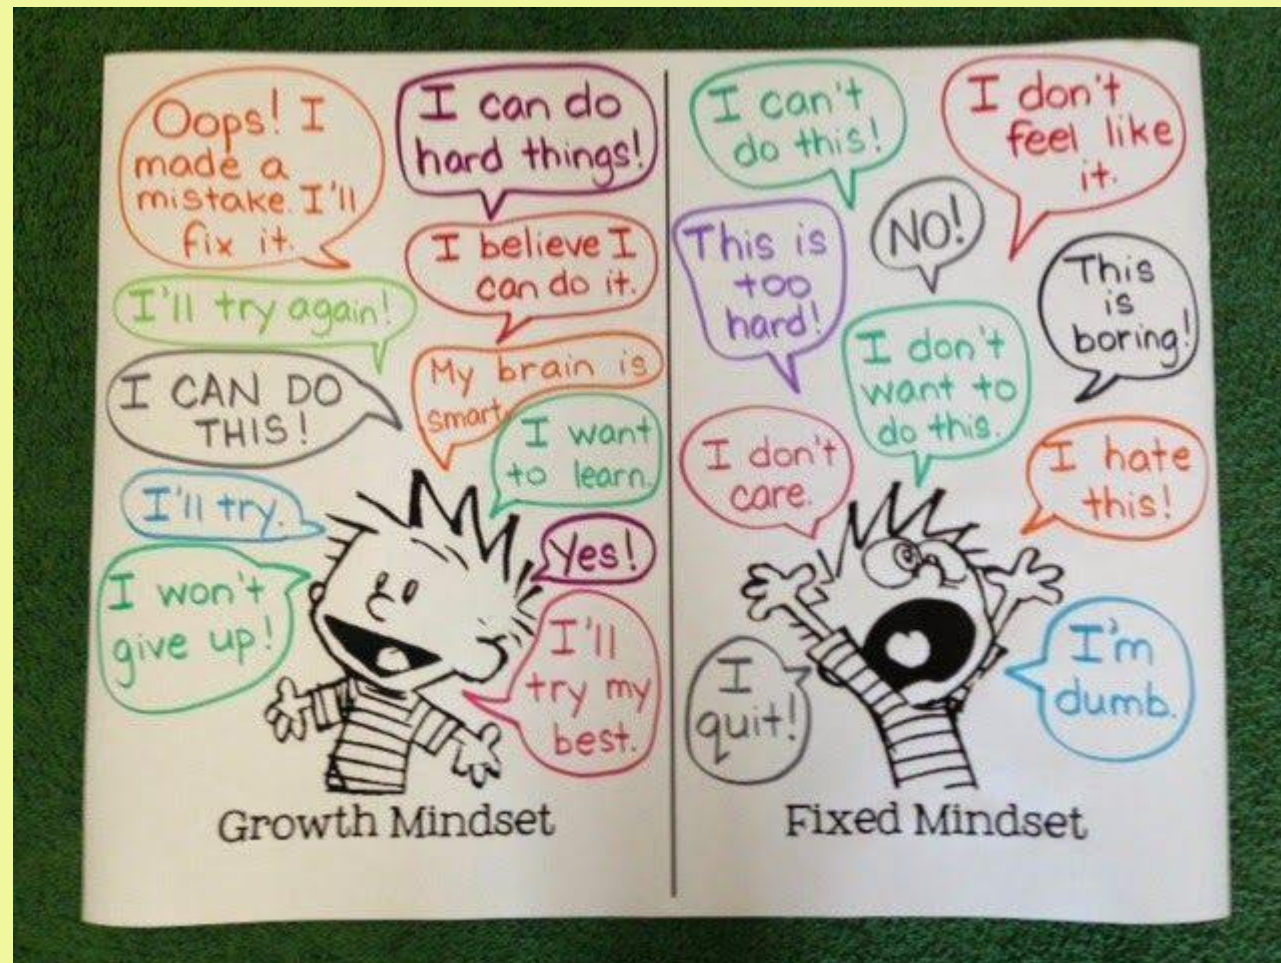 Oops! I
made a
mistake. I'll
fix it.
I can do
hard things!
I believe I
can do it.
I'll try again!
My brain is
smart
I CAN DO
THIS!
I want
to learn.
I'll try.
Yes!
I won't
give up!
I'll
try my
best.
Growth Mindset
I can't
do this!
I don't
feel like
it.
NO!
This is
too
hard!
This
is
boring!
I don't
want to
do this.
I don't
care.
I hate
this!
I
quit!
I'm
dumb.
Fixed Mindset